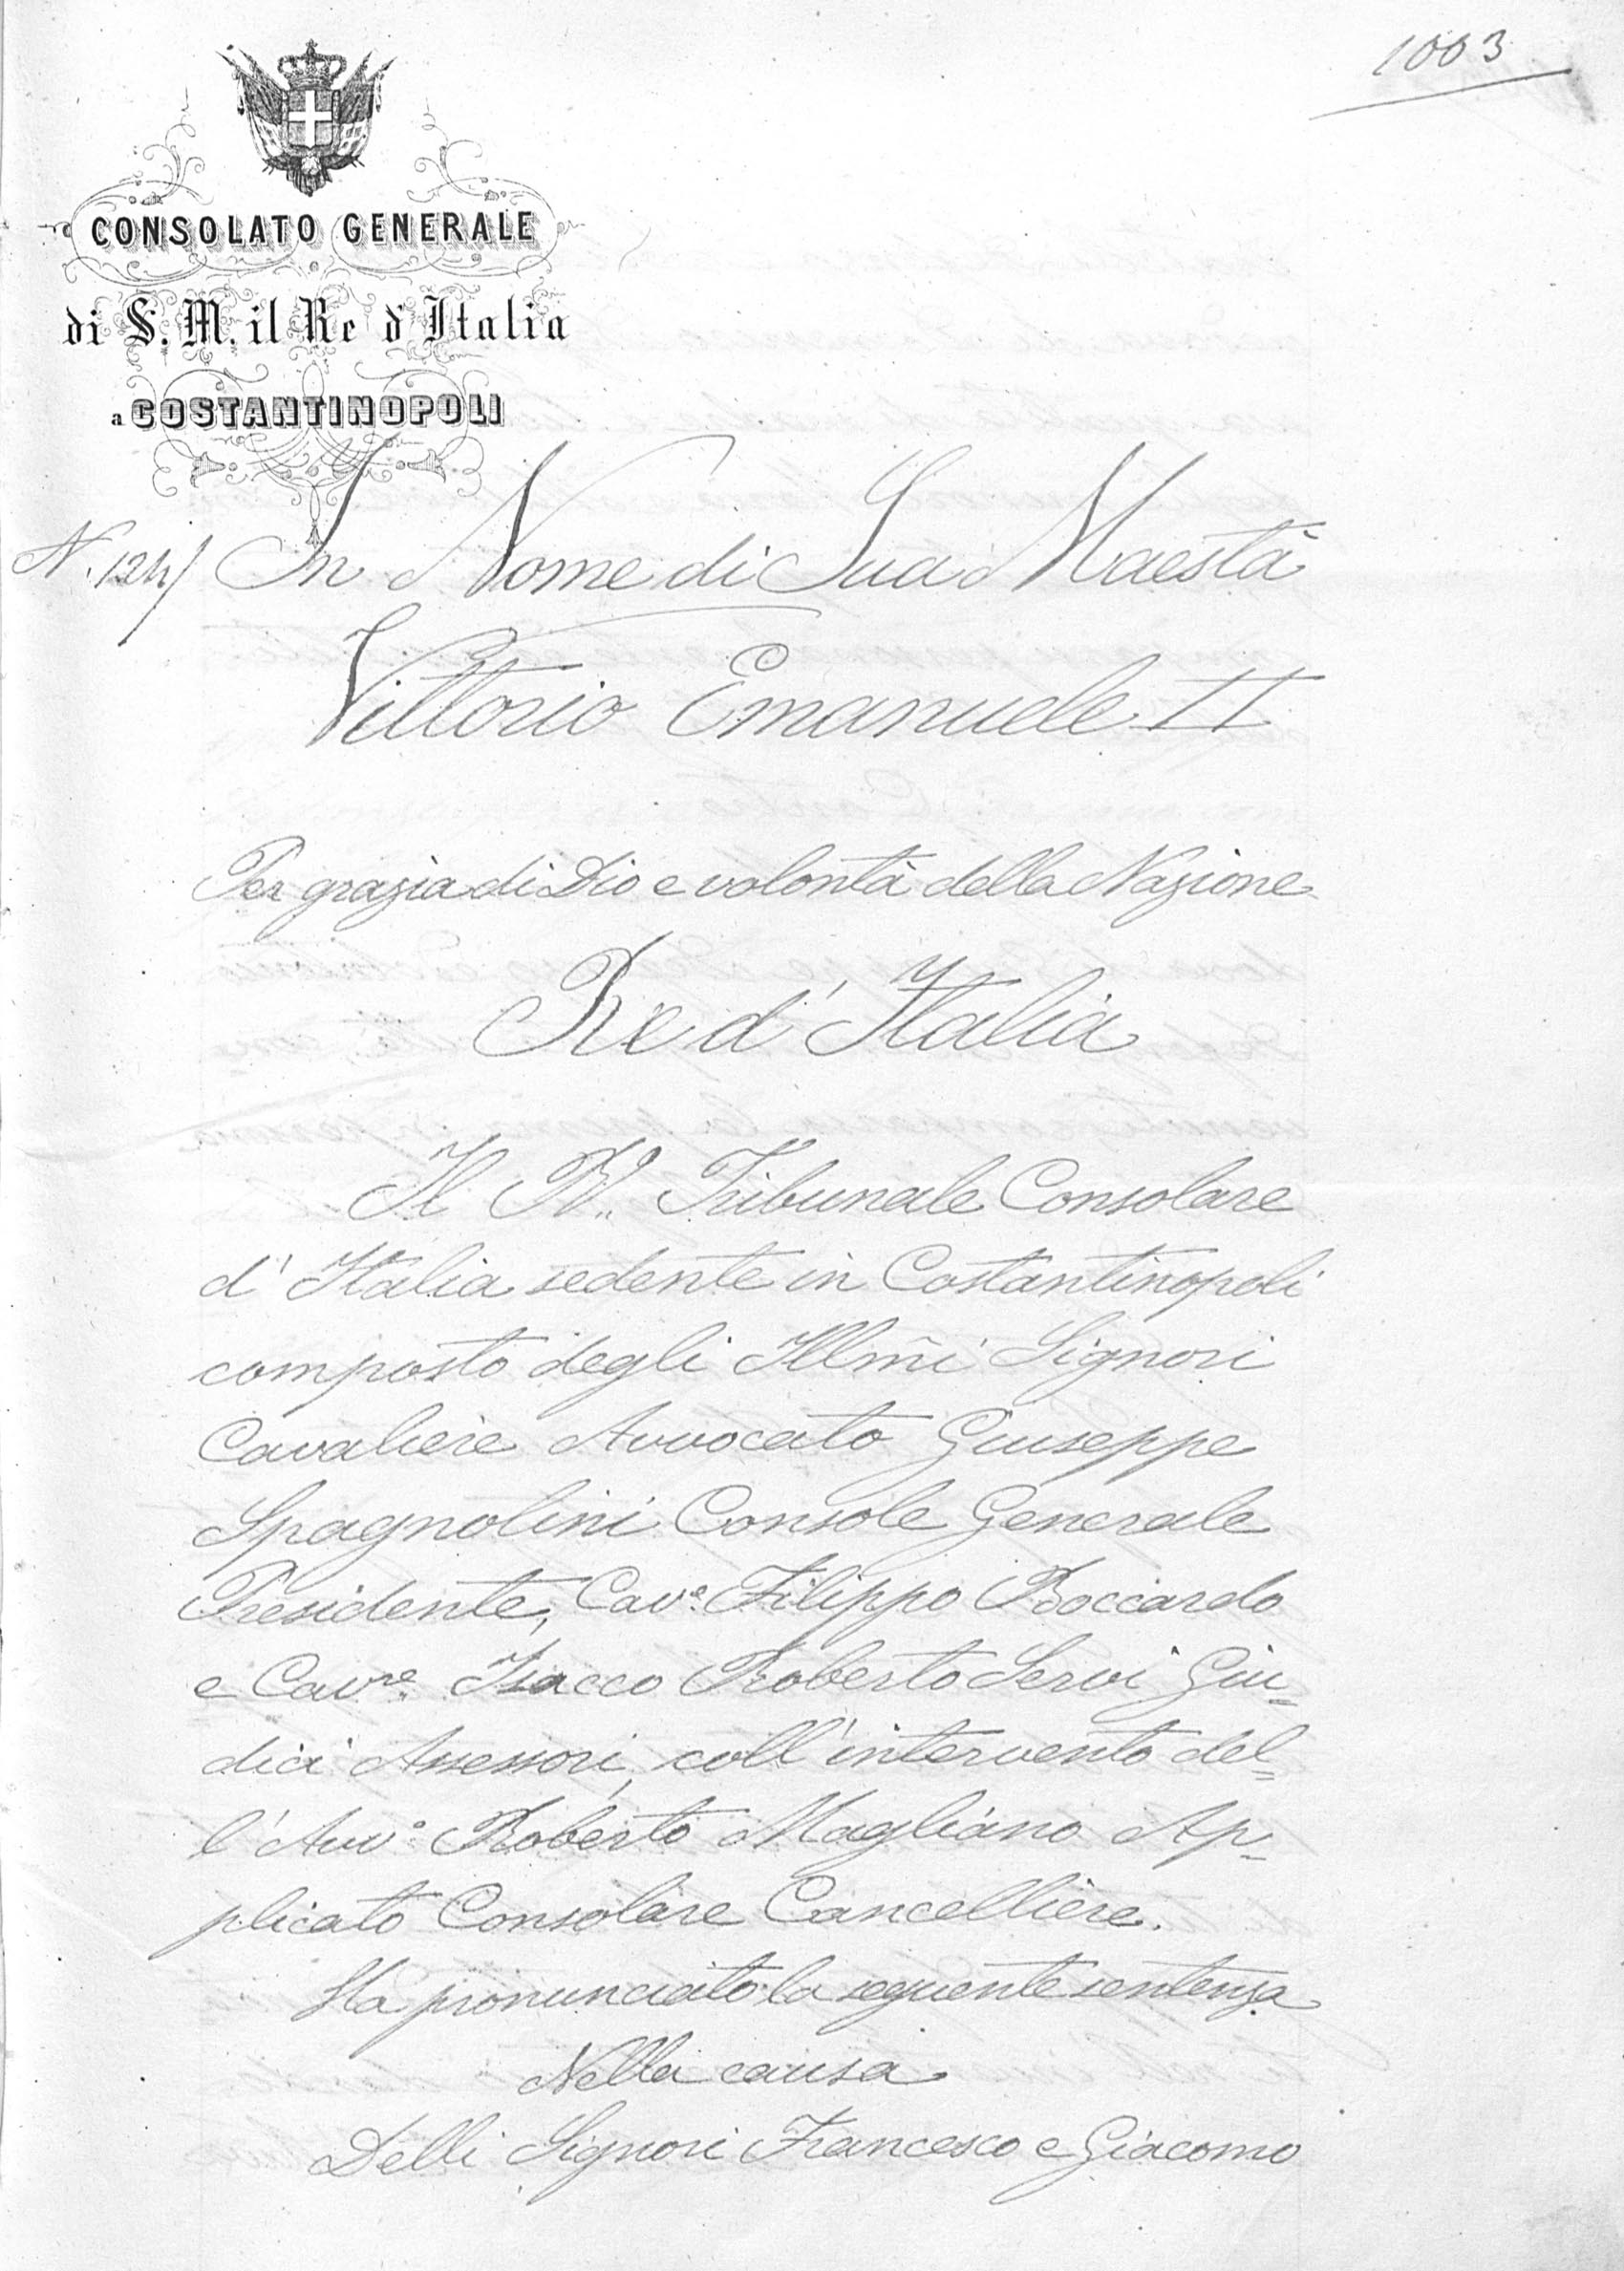 1003
CONSOLATO GENERALE
di S. M. il Re d'Italia
a COSTANTINOPOLI
N. 124 In Nome di Sua Maestà
Vittorio Emanuele II
Per grazia di Dio e volontà della Nazione
Re d'Italia
Il R.. Tribunale Consolare
d'Italia sedente in Costantinopoli
composto degli Illm̃i Signori
Cavaliere Avvocato Giuseppe
Spagnolini Console Generale
Presidente, Cav.e Filippo Boccardo
e Cav.re Isacco Roberto Servi Giu=
dici Assessori, coll'intervento del=
l'Avv.o Roberto Magliano Ap=
plicato Consolare Cancelliere.
Ha pronunciato la seguente sentenza
Nella causa
Delli Signori Francesco e Giacomo